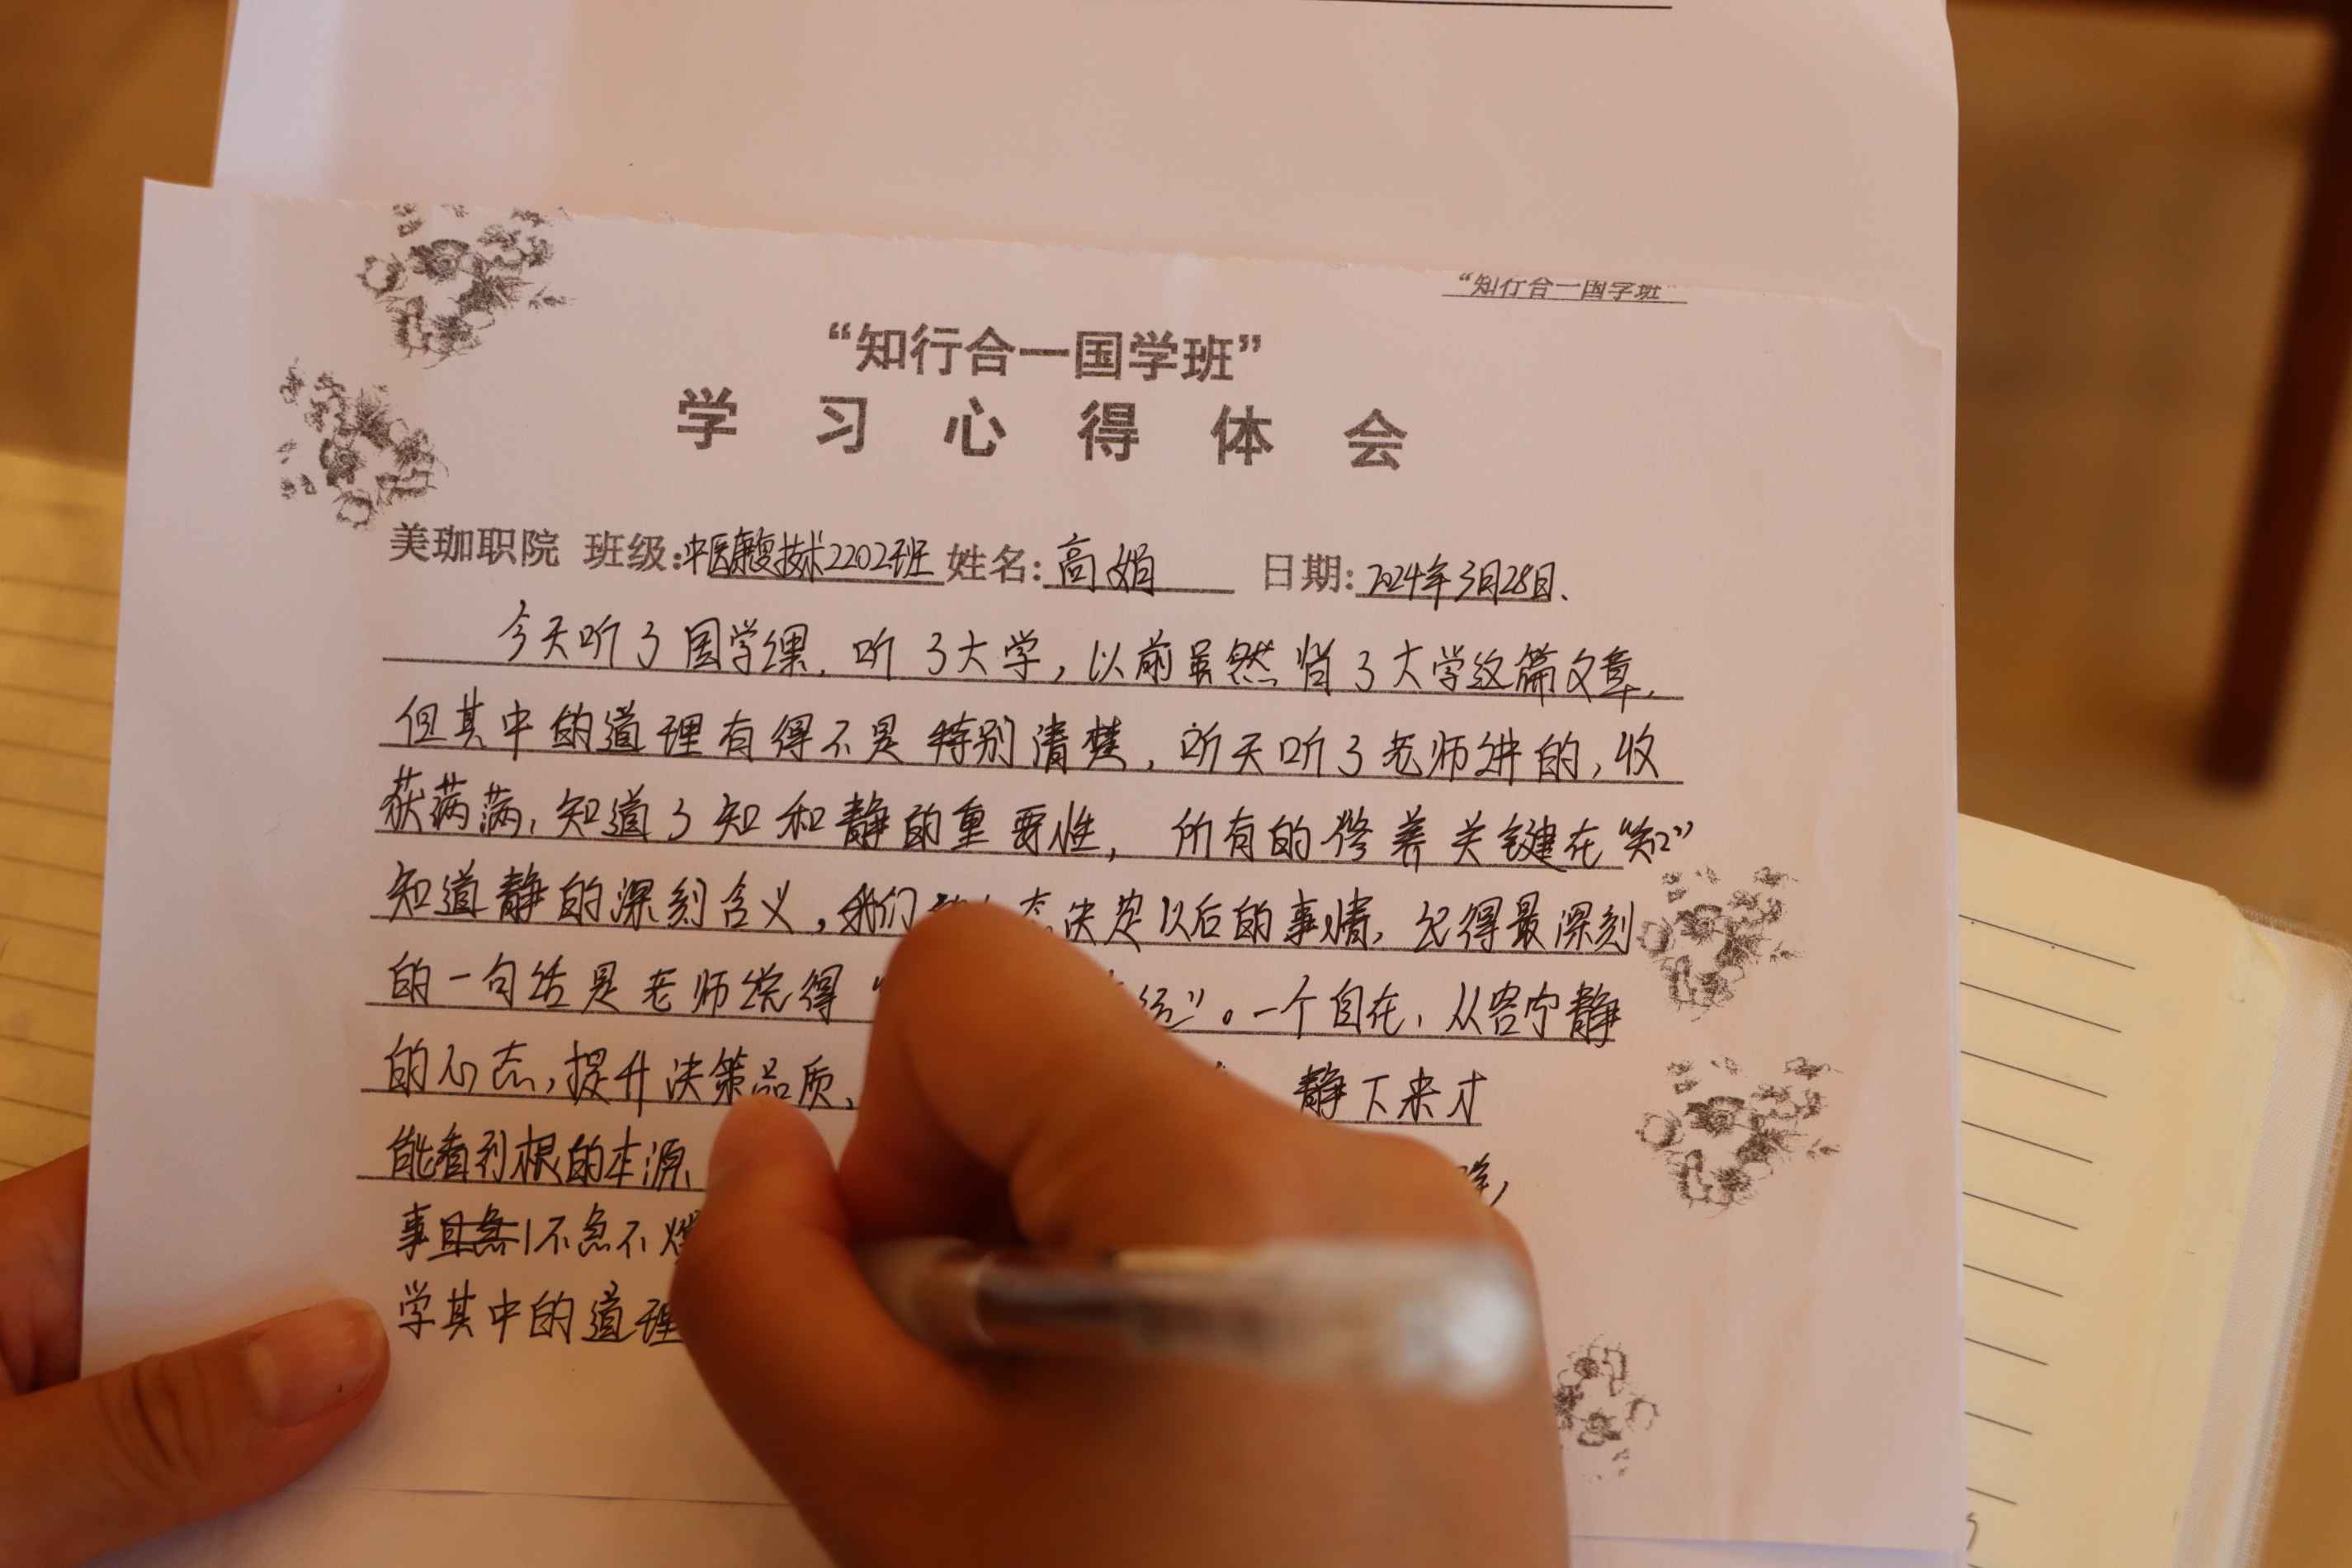 “知行合一国学班”
“知行合一国学班”
学习心得体会
美珈职院 班级:中医康复技术2202班 姓名:高娟 日期:2024年3月28日.
今天听了国学课,听了大学,以前虽然背了大学这篇文章,
但其中的道理有得不是特别清楚,听天听了老师讲的,收
获满满,知道了知和静的重要性,所有的修养关键在“知”
知道静的深刻含义,我们 态决定以后的事情,记得最深刻
的一句话是老师说得“ ”。一个自在,从容宁静
的心态,提升决策品质、 静下来才
能看到根的本源、
事 不急不
学其中的道理